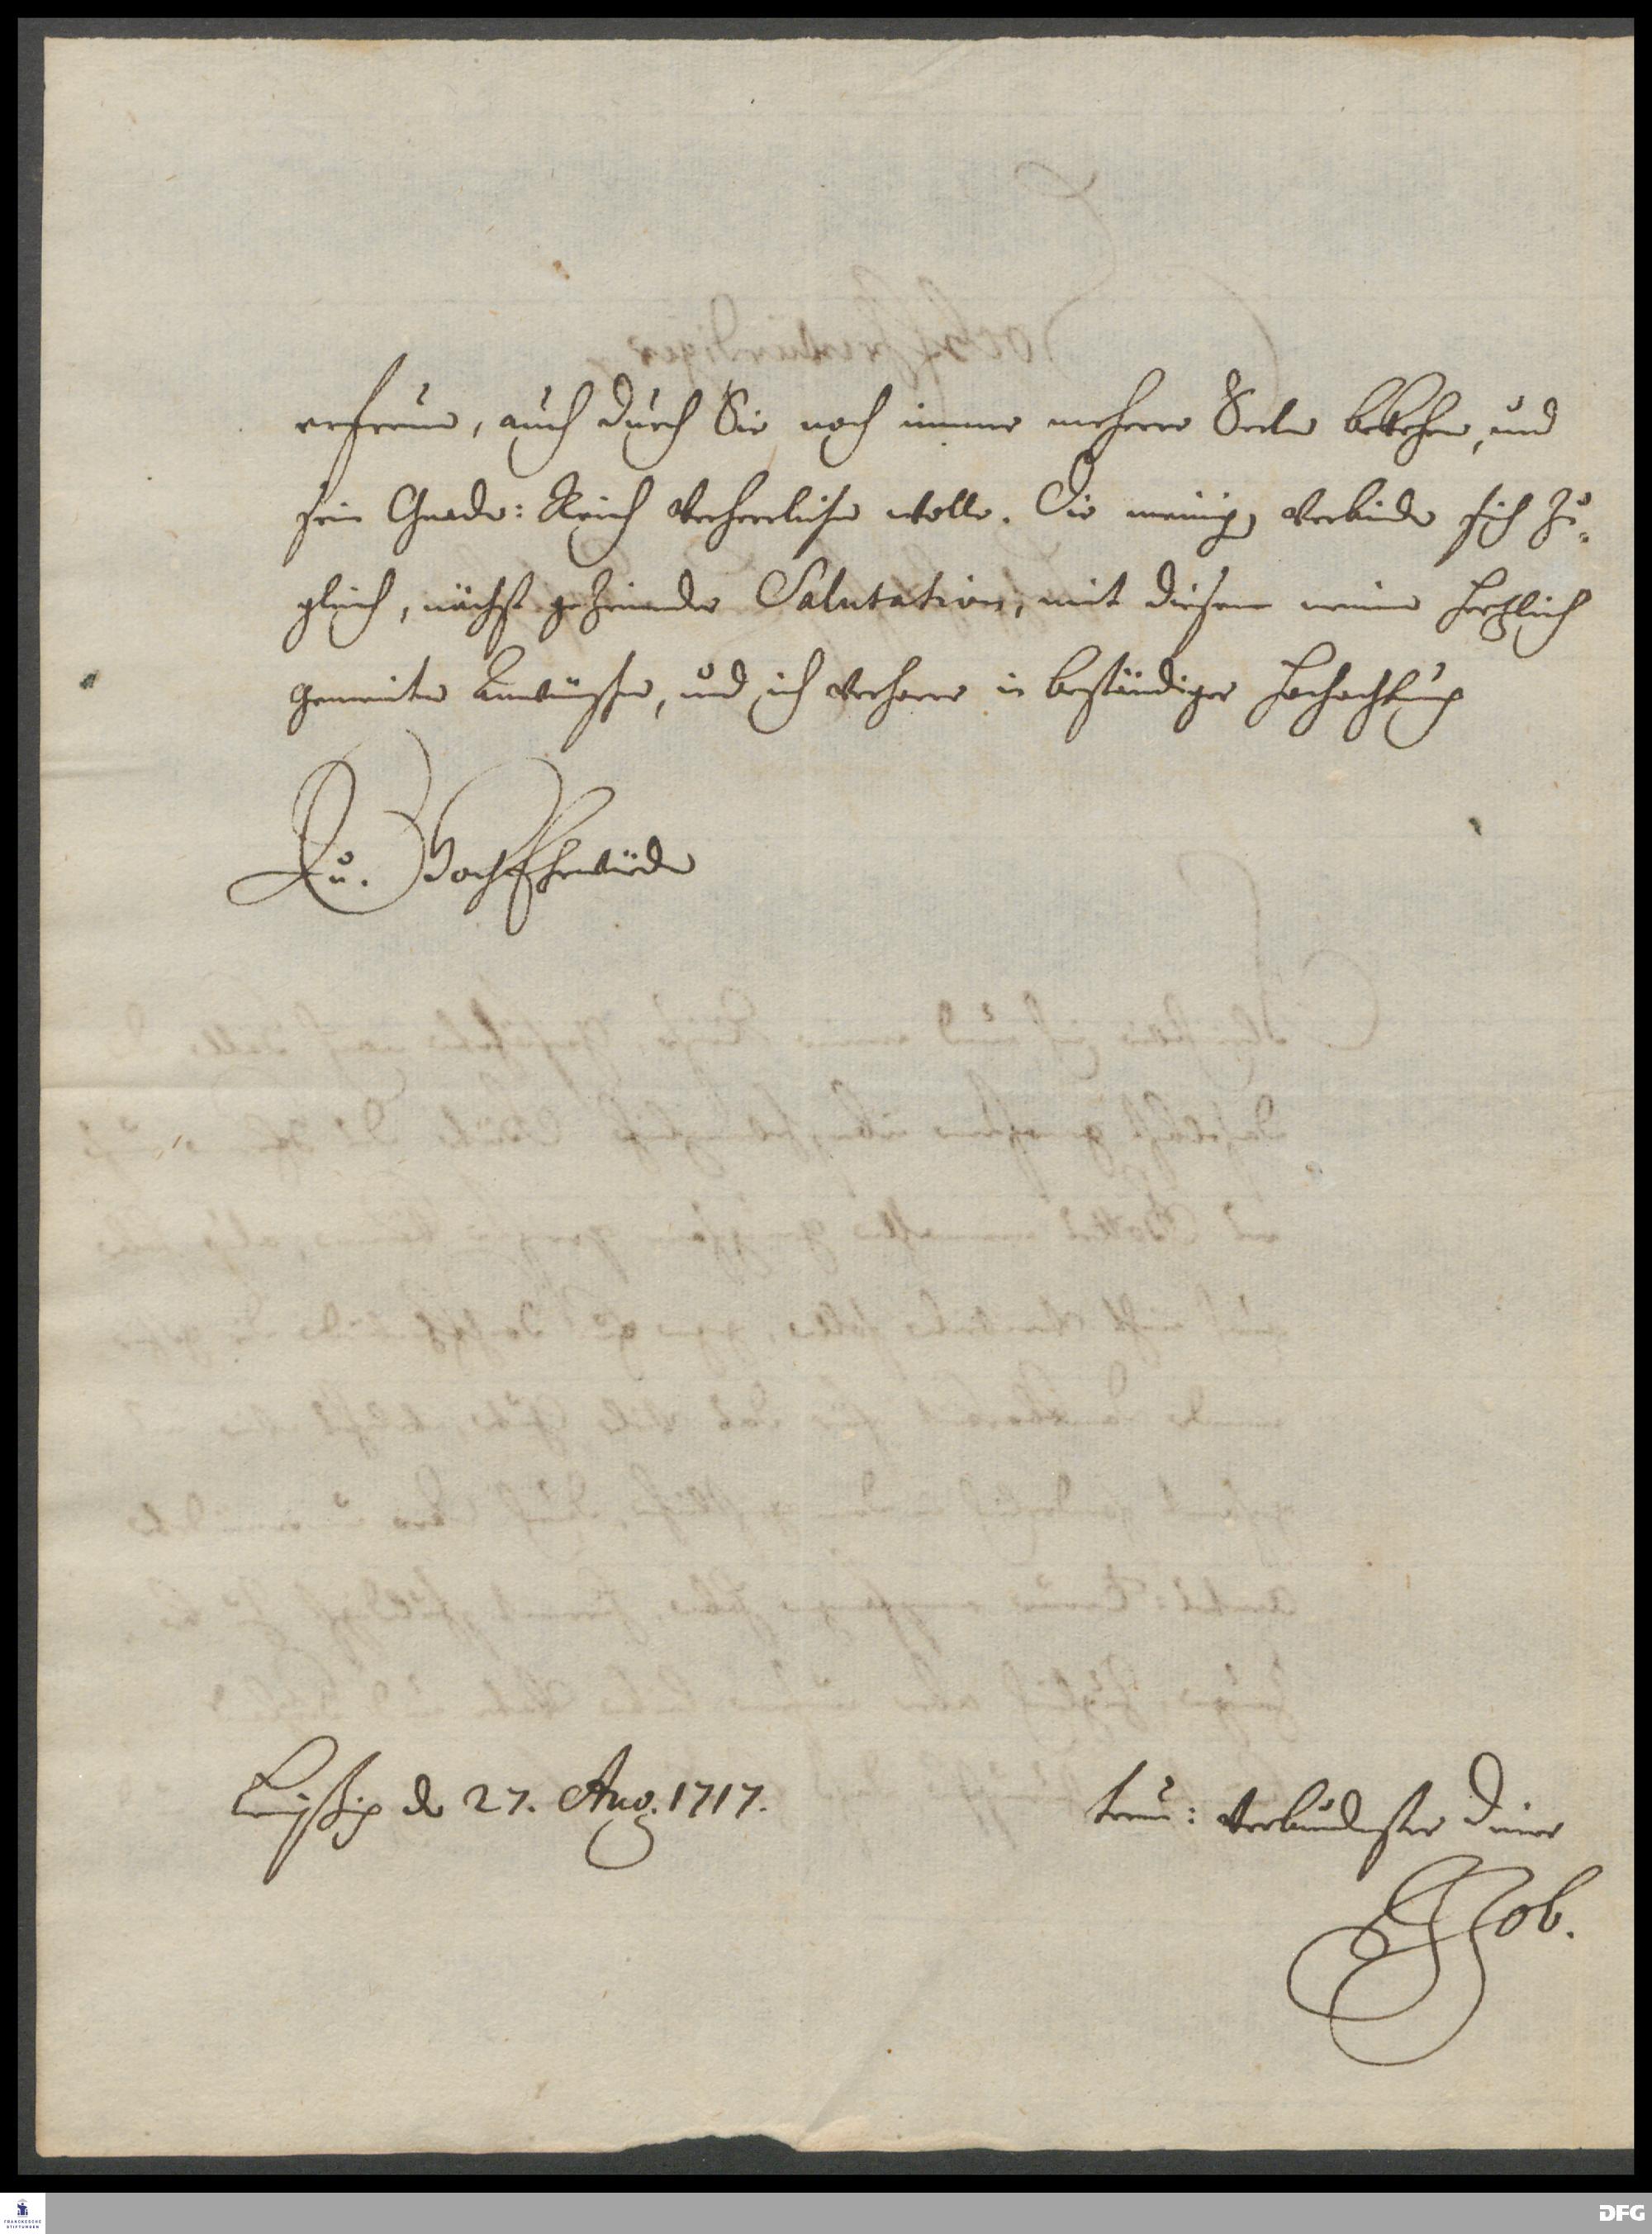 erfreuen, auch durch Sie noch immer mehrere Seelen bekehren, und
sein Gnaden: Reich verherrlichen wolle. Die meinige verbindet sich zu-
gleich, nächst geziemender Salutation, mit diesem meinem hertzlich
gemeinten Anwünschen, und ich verharre in beständiger Hochachtung
Eu. HochEhrwürden
Leipzig den 27. Aug. 1717.
treu: verbundenster Diener
Job.
FRANCKESCHE
STIFTUNGEN
DFG